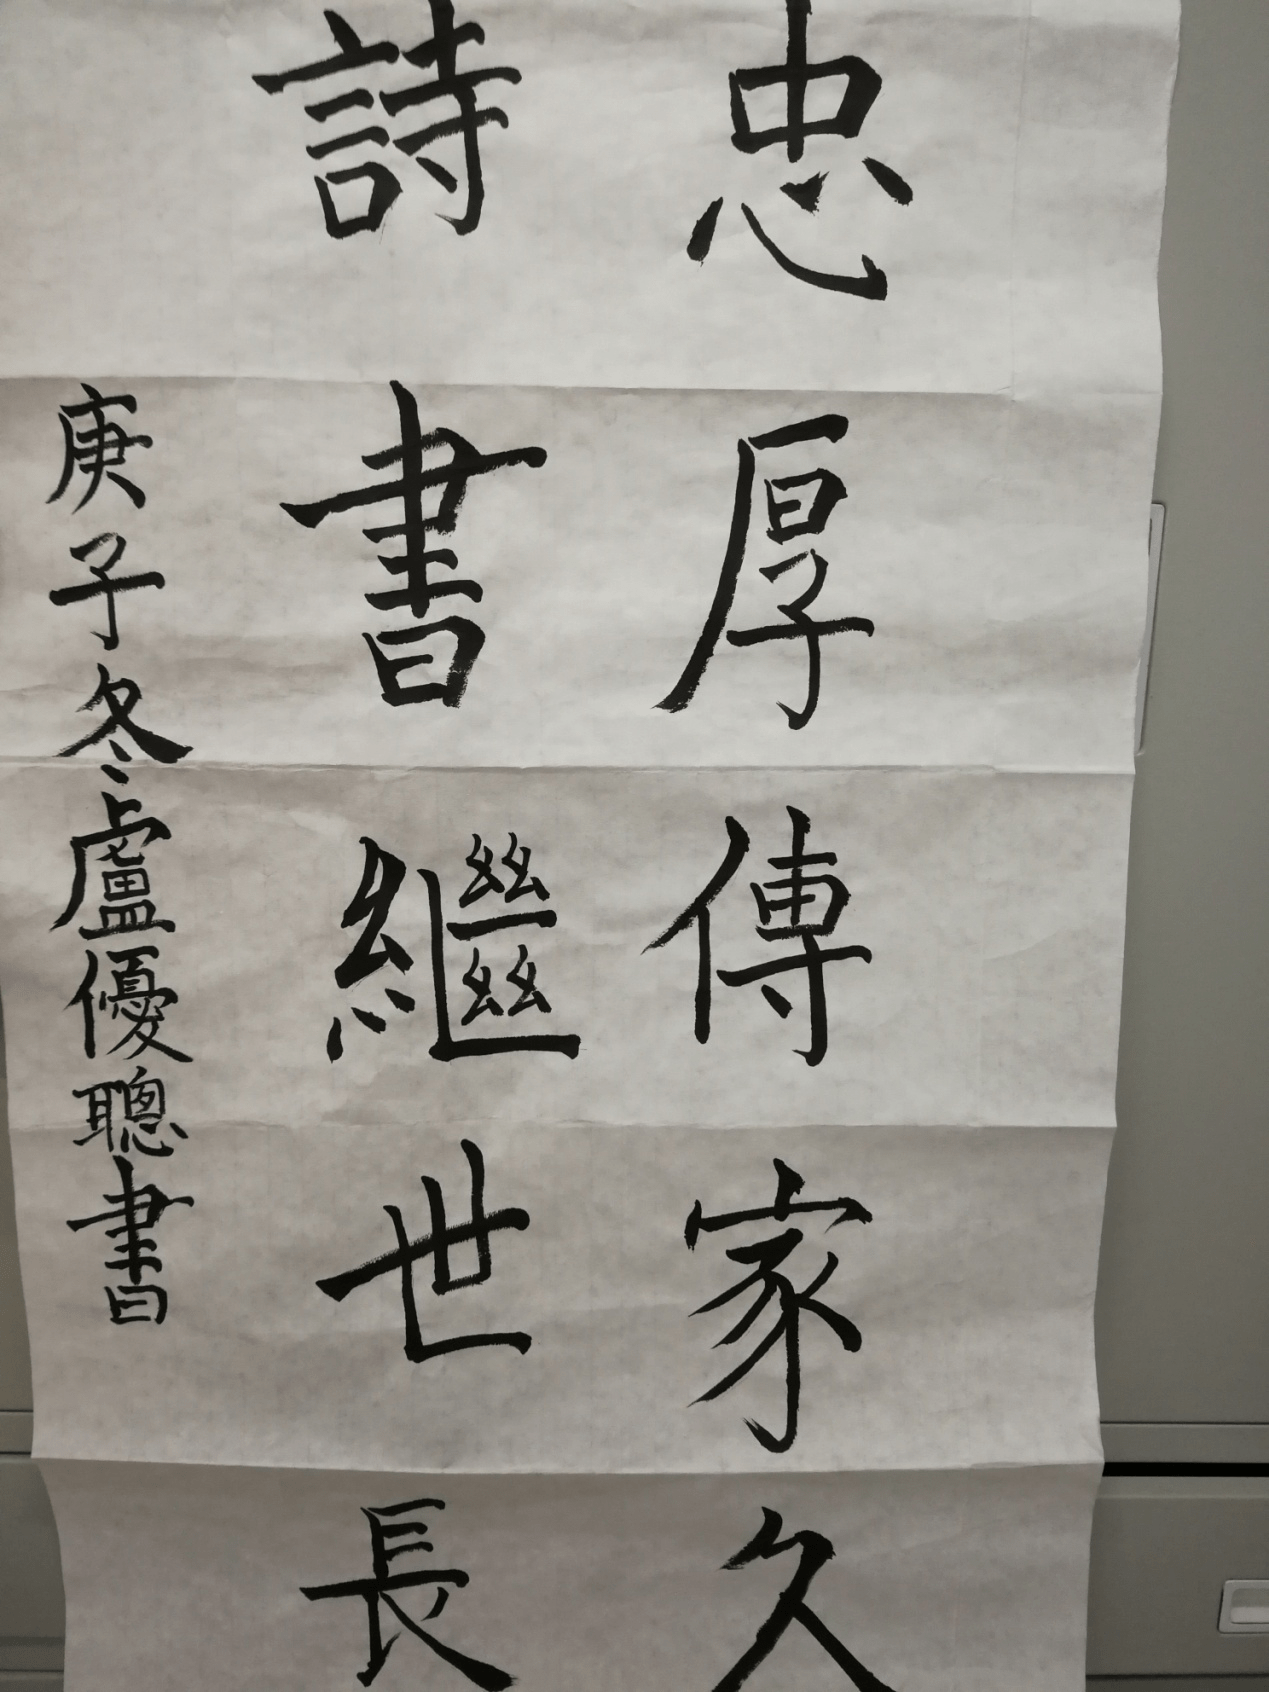 忠厚傳家久
詩書繼世長
庚子冬盧優聰書